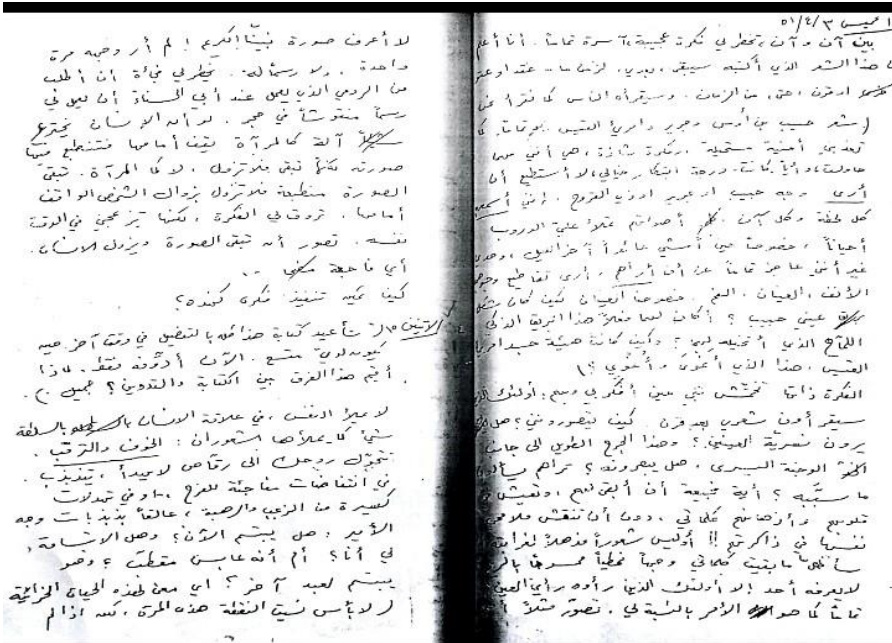 الخميس ٥١/٤/٣
بين آن وآن، تخطر لي فكرة عجيبة، آسرة تماماً. أنا أعلم
هذا الشعر الذي أكتبه سيبقى، بعدي، لزمن ما – عقد أو عقدين
أو قرن، حتى، من الزمان. وسيقرأه الناس كما نقرأ نحن
(شعر حبيب بن أوس وجرير وامرئ القيس. هو تماماً. كما
تعذبني أمنية مستحيلة، وفكرة شاذة، هي أنني مهما
حاولت، وأياً كانت درجة ابتكار خيالي، لا أستطيع أن
أرى وجه حبيب أو جرير أو ذي القروح. إنني أسمعهم
كل لحظة وكل آن. أصواتهم تملأ عليّ الدروب
أحياناً، خصوصاً حين أمشي عائداً آخر الليل، وحدي
غير أنني عاجز تماماً عن أن أراهم، أرى تقاطيع وجوههم
الأنف، العينان، الفم. خصوصاً العينان كيف كان شكل
عيني حبيب؟ أكان لهما فعلاً هذا البريق الذكي
اللماح الذي أتخيله لهما؟ وكيف كانت هيئة جسد امرئ
القيس، هذا الذي أَغوى وأُغوي؟)
الفكرة ذاتها تخمشني حين أفكر بي وبهم: أولئك الذين
سيقرأون شعري بعد قرن. كيف يتصورونني؟ هل
يرون شعرية العينين؟ وهذا الجرح الطويل إلى جانب
الوجنة اليسرى، هل يبصرونه؟ تراهم يسألون
ما سببه؟ أية فجيعة أن ألقى لهم، وتعيش في
قلوبهم وأذهانهم كلماتي، دون أن تنقش ملامحي
نفسها في ذاكرتهم!! أوليس شعوراً مذهلاً لغرابته
سأظل ما بقيت كلماتي وجهاً نمطياً ممسوحاً
لا يعرفه أحد إلا أولئك الذين رأوه رأي العين
تماماً كما هو الأمر بالنسبة لي. تصوّر مثلاً
لا أعرف صورة نبيّنا الكريم! لم أر وجهه مرة
واحدة. ولا رسماً له. تخطر لي فجأة أن أطلب
من الرومي الذي يعمل عند أبي الحسناء أن يعمل لي
رسماً منقوشاً في حجر. لو أن الإنسان يخترع
آلة كالمرآة يقف أمامها فتنطبع فيها
صورته لكنها تبقى فلا تزول، لا كالمرآة. تبقى
الصورة منطبعة فلا تزول بزوال الشخص الواقف
أمامها. تروقني الفكرة، لكنها تزعجني في الوقت
نفسه. تصور أن تبقى الصورة ويزول الإنسان.
أي فاجعة ..
كيف يمكن تنفيذ فكرة كهذه؟
الاثنين (سأعيد كتابة هذا كله بالتفصيل في وقت آخر حين
يكون لدي متسع. الآن أدوّنه فقط. لماذا
أقيم هذا الفرق بين الكتابة والتدوين؟ جميل.).
لا يملأ النفس، في علاقة الإنسان بالسلطة
شيء كما يملأها شعوران: الخوف والترقب.
تتحول روحك إلى رقاص لا يهدأ، يتذبذب.
في انتفاضات مفاجئة للفرح، أو في تهدلات
كسيرة من الرعب والرهبة، عالقاً بذبذبات وجه
الأمير: هل يبتسم الآن؟ وهل الابتسامة
لي أنا؟ أم أنه عابس مقطّب؟ وهو
يبتسم لعبد آخر؟ أي معنى لهذه الحياة
(لا بأس نسيت النقطة هذه المرة، لكن إذا لم